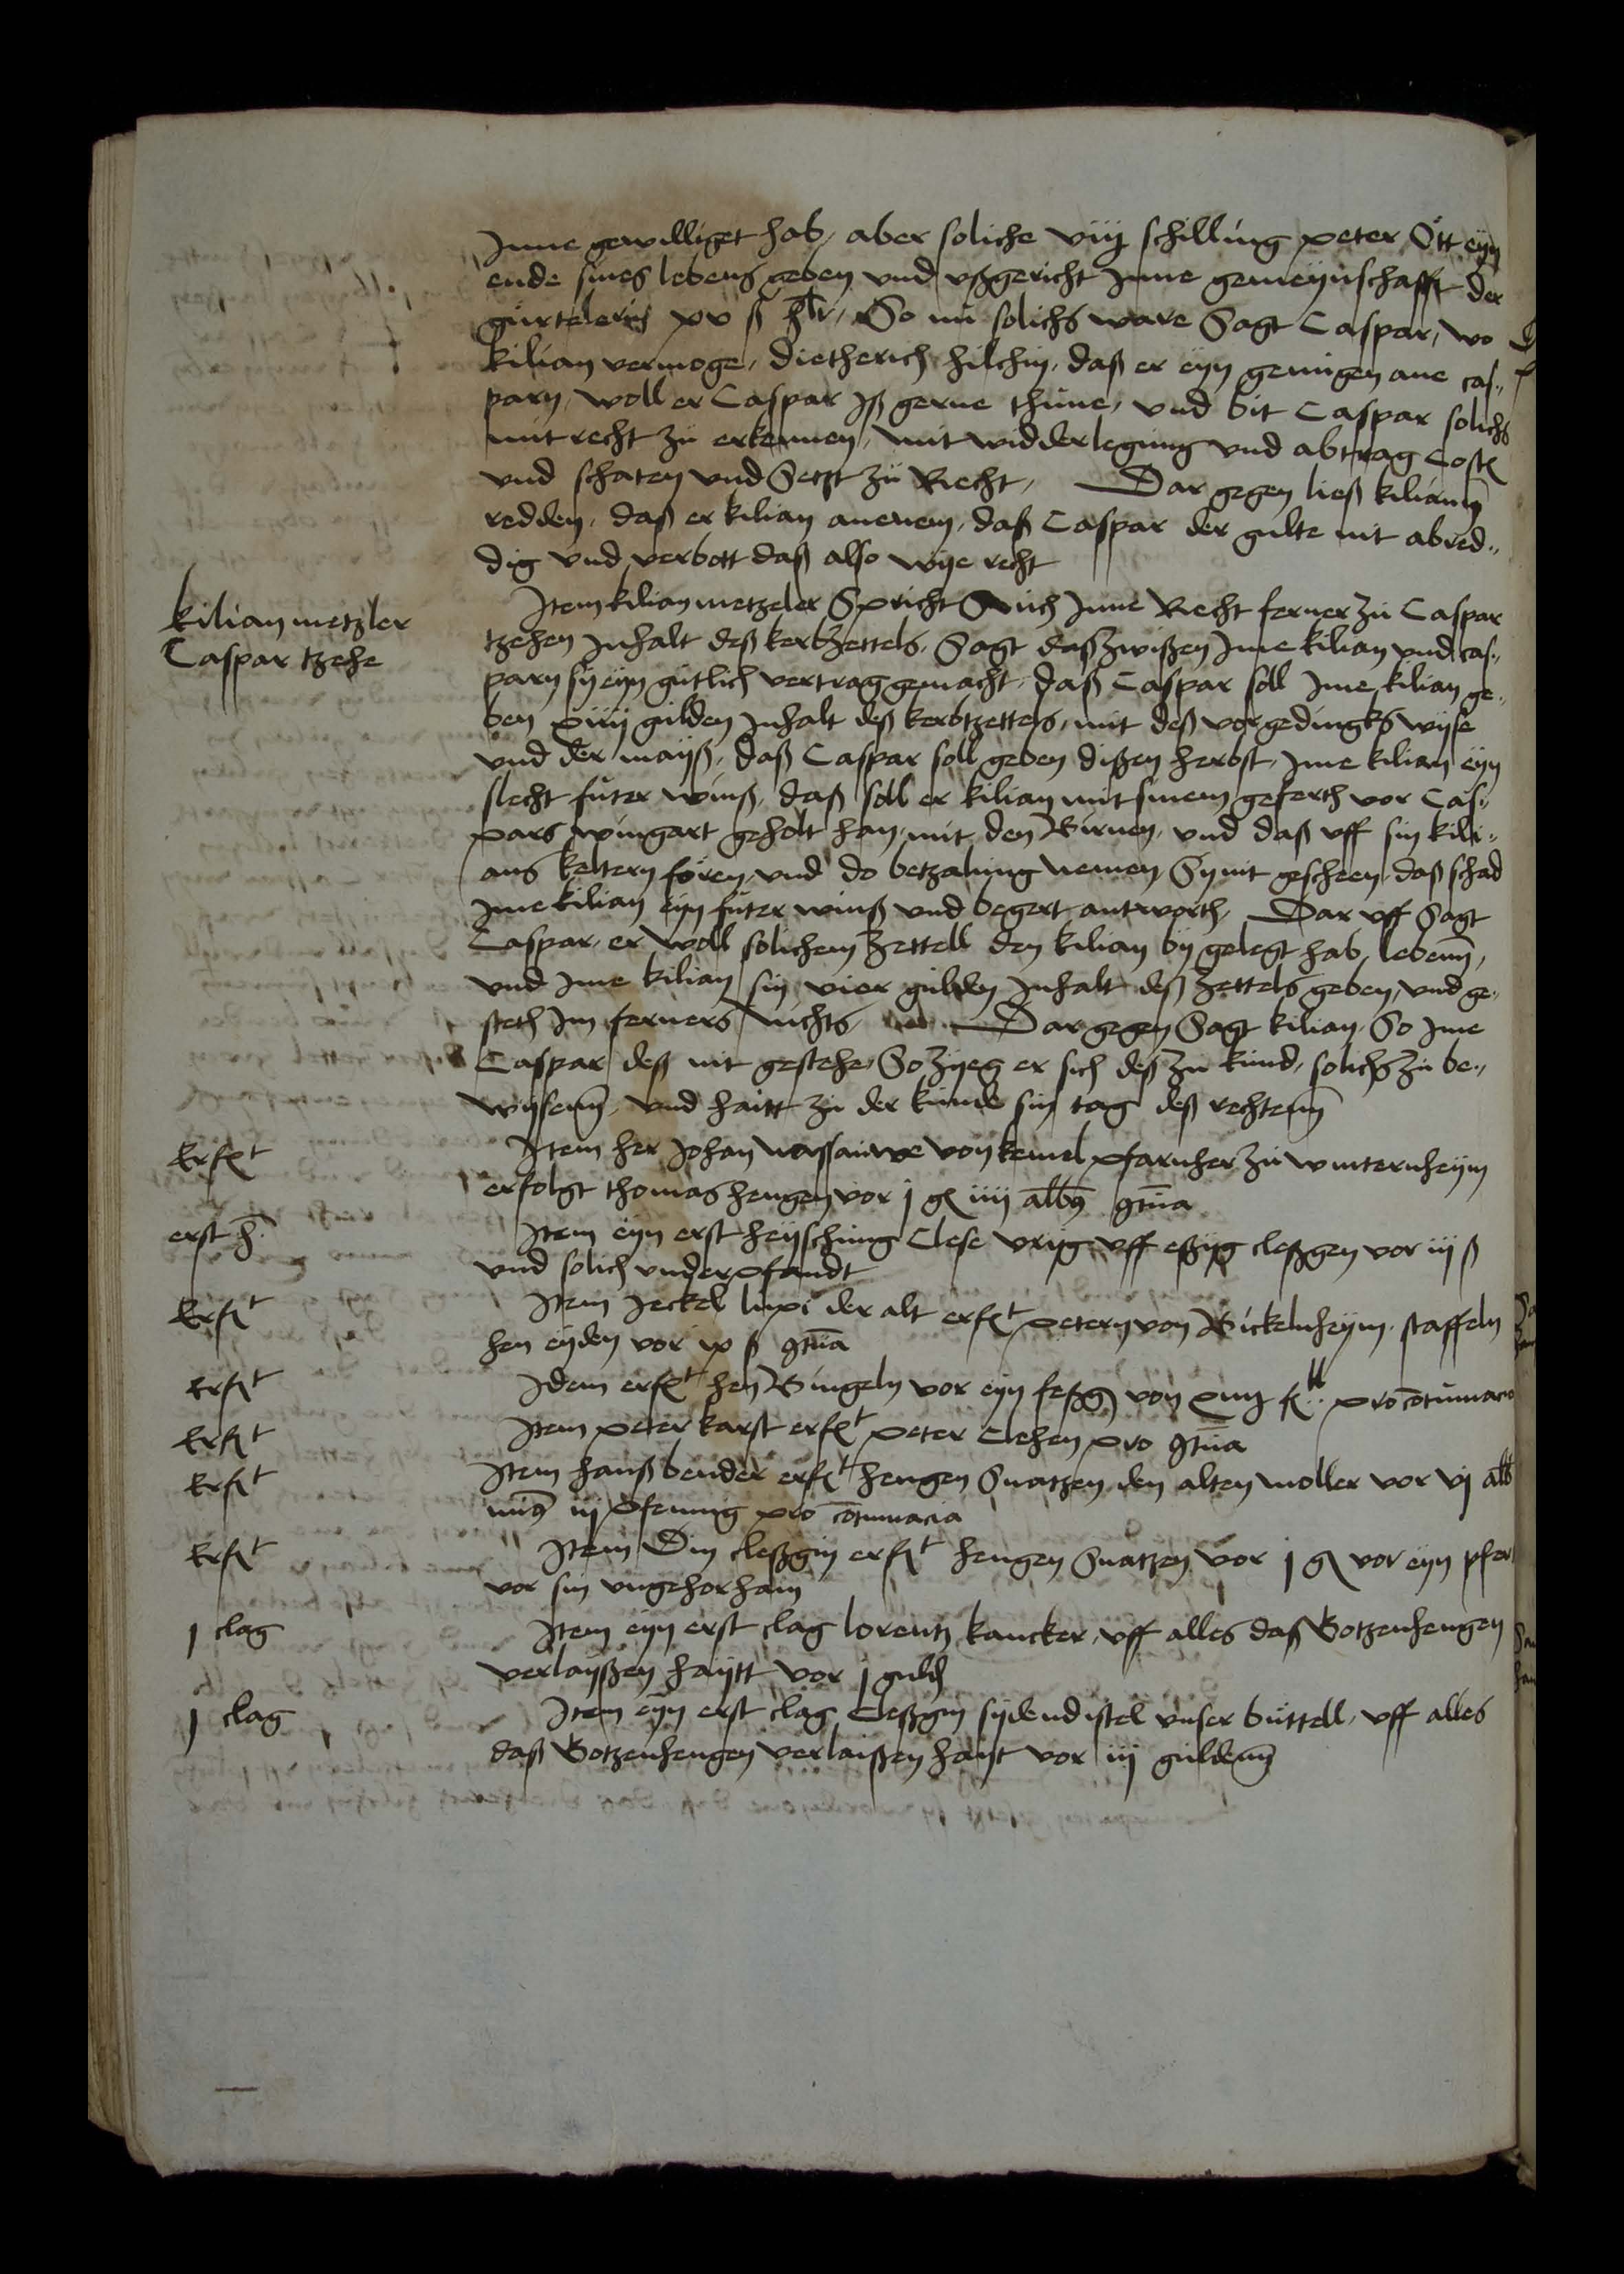 Jnne gewilliget hab, aber soliche viij schilling peter Ott eyn
ende sines lebens geben und ußgericht Jnne gemeynschafft der
gurtelerin xv ß hlr, So nu solichs ware Sagt Caspar, wo
kilian vermoge, dietherich hilchin, daß er eyn genugen ane cas„
parn, woll er Caspar Jß gerne thune, und bit Caspar solichs
mit recht zu erkennen, mit widderlegung und abtrag Cost
und schaten und Setzt zu Recht, Dar gegen ließ kiliann
redden, daß er kilian anenem, daß Caspar der gulte nit abred„
dig und verbott daß also wije recht
kilian metzler
Caspar tzehe
Jtem kilian metzeler Spricht Auch Jnne Recht ferner zu Caspar
tzehen Jnhalt deß kerbzettels, Sagt daß zwißen Jme kilian und cas„
parn sy eyn gutlich vertrag gemacht, daß Caspar soll Jme kilian ge„
ben xiiij gulden Jnhalt deß kerbtzettels, mit deß vorgedingks wyse
und der mayß, daß Caspar soll geben dißen herbst, Jme kilian eyn
slecht futer winß, daß soll er kilian mit sinem geferth vor Cas„
pars wingart geholt han, mit den Birnen, und daß uff sin kili„
ans keltern foren, und do betzalung nemen Sy nit gescheen, daß schad
Jme kilian eyn futer winß und begert antworth, Dar uff Sagt
Caspar, er woll solichem zettell den kilian by gelegt hab, lebenn,
und Jme kilian sin vier gulden Jnhalt deß zettels geben, und ge„
steth Jm ferners nichts, Dar gegen Sagt kilian, So Jme
Caspar deß nit gestehe, So zyeg er sich deß zu kund, solichs zu be„
wysenn, und haitt zu der kunde sin tag deß rechtenn
Erfolgt
Jtem her Johan nassauwe von kemel pfarnher zu winternheym
erfolgt thomas hengen vor j gl iiij albus gtua
erst h.
Jtem eyn erst heyschung Clese vrig uff eßijg cleßgen vor iij ß
und solich underpfandt
Erft
Jtem Jeckel lupi der alt erft petern von Bickelnheym, staffeln
hen eyden vor ix ß gtua
Erft
Jdem erft hen Bingeln vor eyn feßg von xiiij fl pro contumacia
Erft
Jtem peter karst erft peter Clehen pro gtua
Erft
Jtem hanß bender erft hengen Snatzen den alten moller vor vj alb
minus iij pfennig pro contumacia
Erft
Jtem Din cleßgin erft hengen Snatzen vor j gl vor eyn pfert
vor sin ungehorham
j clag
Jtem eyn erst clag lorentz kancker, uff alles daß Botzenhengen
verlayßen haytt vor j guld
j clag
Jtem eyn erst clag Cleßgin sydendistel unser buttell, uff alles
daß Botzenhengen verlaißen hayt vor iij guldenn